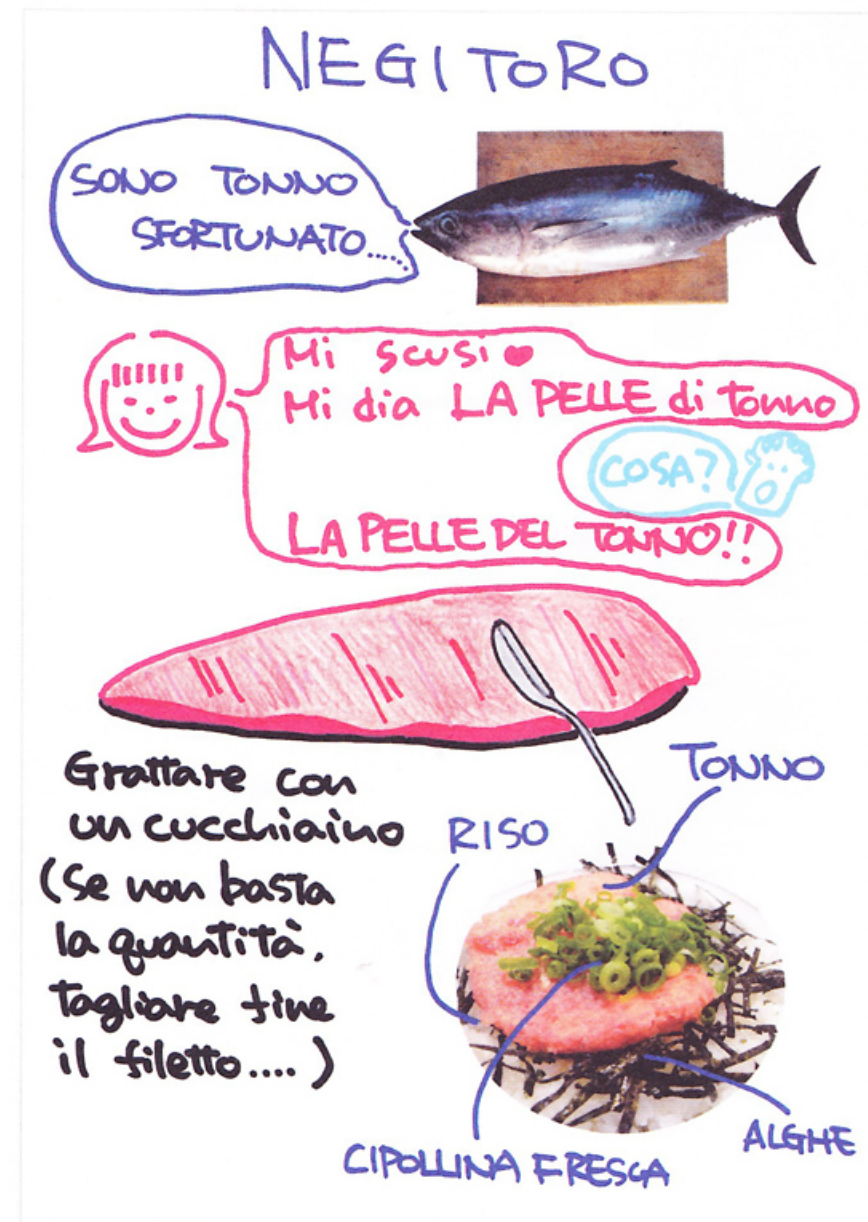 NEGITORO
SONO TONNO
SFORTUNATO......
Mi scusi
Mi dia LA PELLE di tonno
COSA?
LA PELLE DEL TONNO!!
Grattare con
un cucchiaino
(Se non basta
la quantità,
tagliare fine
il filetto....)
TONNO
RISO
ALGHE
CIPOLLINA FRESCA